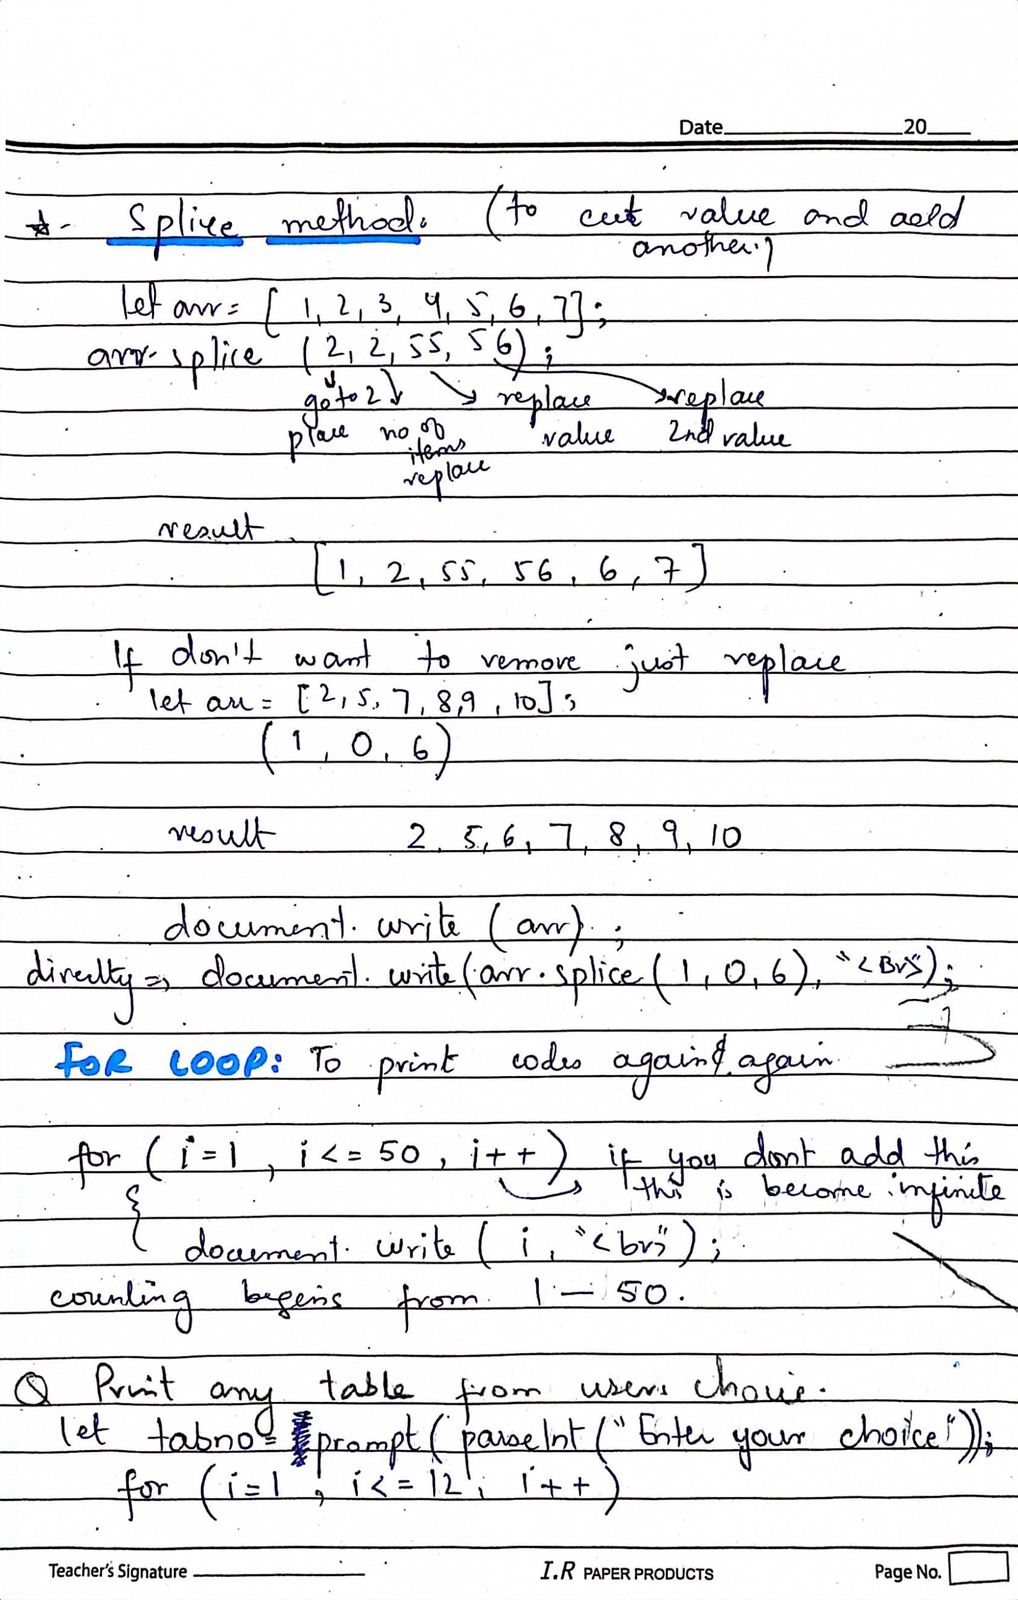 Date 20
☆- Splice method. (to cut value and add
another.)
let arr = [1, 2, 3, 4, 5, 6, 7];
arr.splice (2, 2, 55, 56);
go to 2 replace replace
place no of value 2nd value
items
replace
result
[1, 2, 55, 56, 6, 7]
If don't want to remove just replace
let arr = [2, 5, 7, 8, 9, 10];
(1, 0, 6)
result 2, 5, 6, 7, 8, 9, 10
document.write (arr);
directly => document.write(arr.splice(1, 0, 6), "<Br>");
FOR LOOP: To print codes again & again
for (i=1, i<=50, i++) if you dont add this
this is become infinite
{
document.write (i, "<br>");
counting begins from 1 — 50.
Q Print any table from users choice.
let tabno = prompt(parseInt("Enter your choice"));
for (i=1, i<=12; i++)
Teacher's Signature I.R PAPER PRODUCTS Page No.